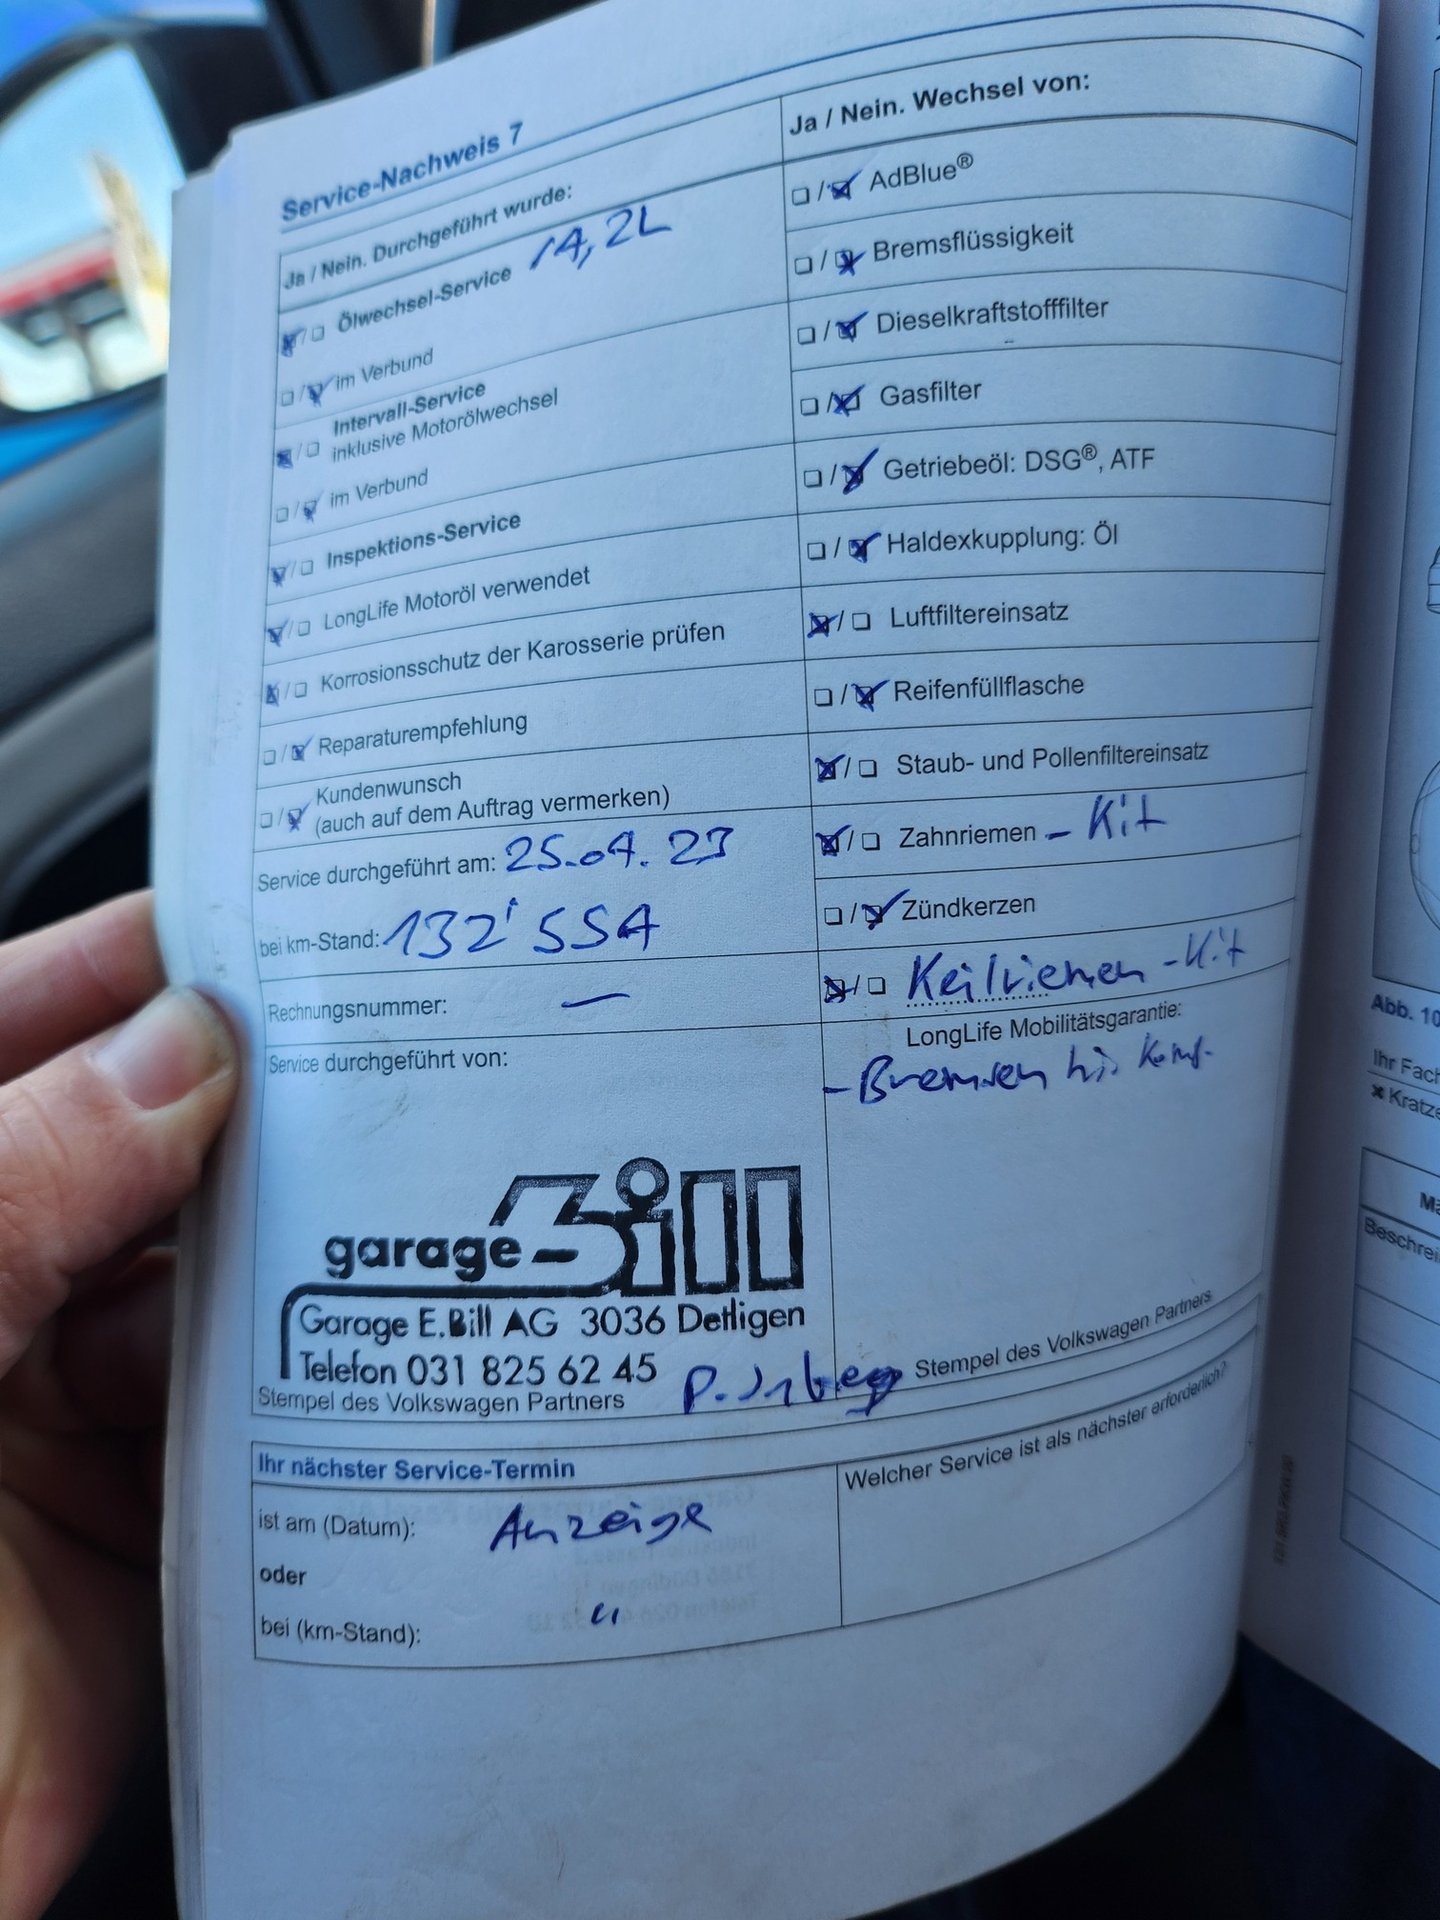 Service-Nachweis 7
Ja / Nein. Durchgeführt wurde:
Ölwechsel-Service 14,2L
im Verbund
Intervall-Service
inklusive Motorölwechsel
im Verbund
Inspektions-Service
LongLife Motoröl verwendet
Korrosionsschutz der Karosserie prüfen
Reparaturempfehlung
Kundenwunsch
(auch auf dem Auftrag vermerken)
Service durchgeführt am: 25.04.23
bei km-Stand: 132'554
Rechnungsnummer: —
Service durchgeführt von:
garage Bill
Garage E.Bill AG 3036 Detligen
Telefon 031 825 62 45
Stempel des Volkswagen Partners
Ja / Nein. Wechsel von:
AdBlue®
Bremsflüssigkeit
Dieselkraftstofffilter
Gasfilter
Getriebeöl: DSG®, ATF
Haldexkupplung: Öl
Luftfiltereinsatz
Reifenfüllflasche
Staub- und Pollenfiltereinsatz
Zahnriemen - Kit
Zündkerzen
Keilriemen - Kit
LongLife Mobilitätsgarantie:
- Bremsen hi. Komp.
Stempel des Volkswagen Partners
Ihr nächster Service-Termin
ist am (Datum): Anzeige
oder
bei (km-Stand): "
Welcher Service ist als nächster erforderlich?
Abb. 10
Ihr Fach
Kratze
Beschrei